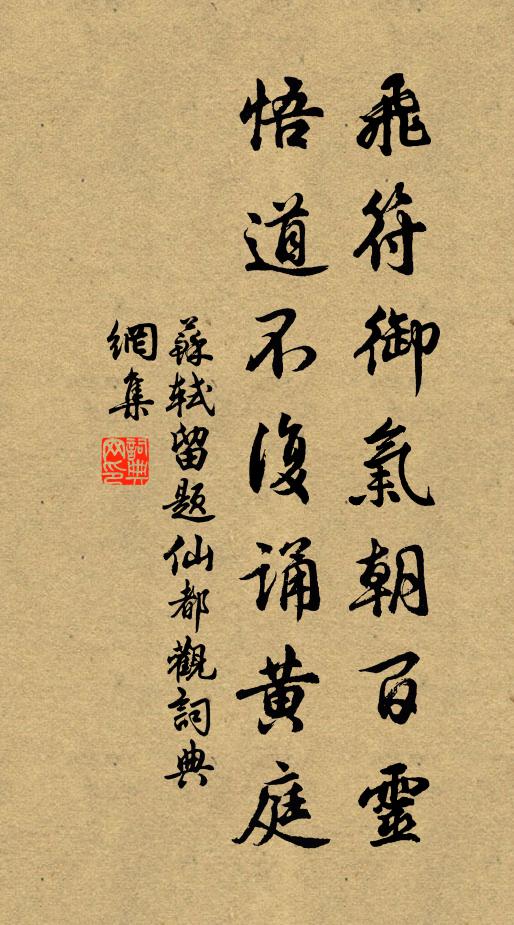 飛符御氣朝百靈
悟道不復誦黃庭
蘇軾留題仙都觀詞典
網集
詞典
网印